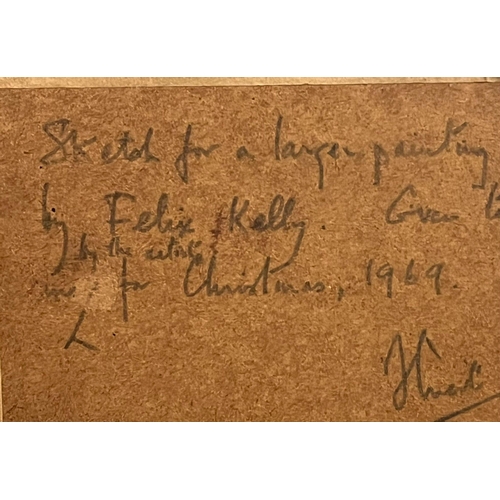 Sketch for a larger painting
by Felix Kelly. Given
by the artist
me, for Christmas, 1969.